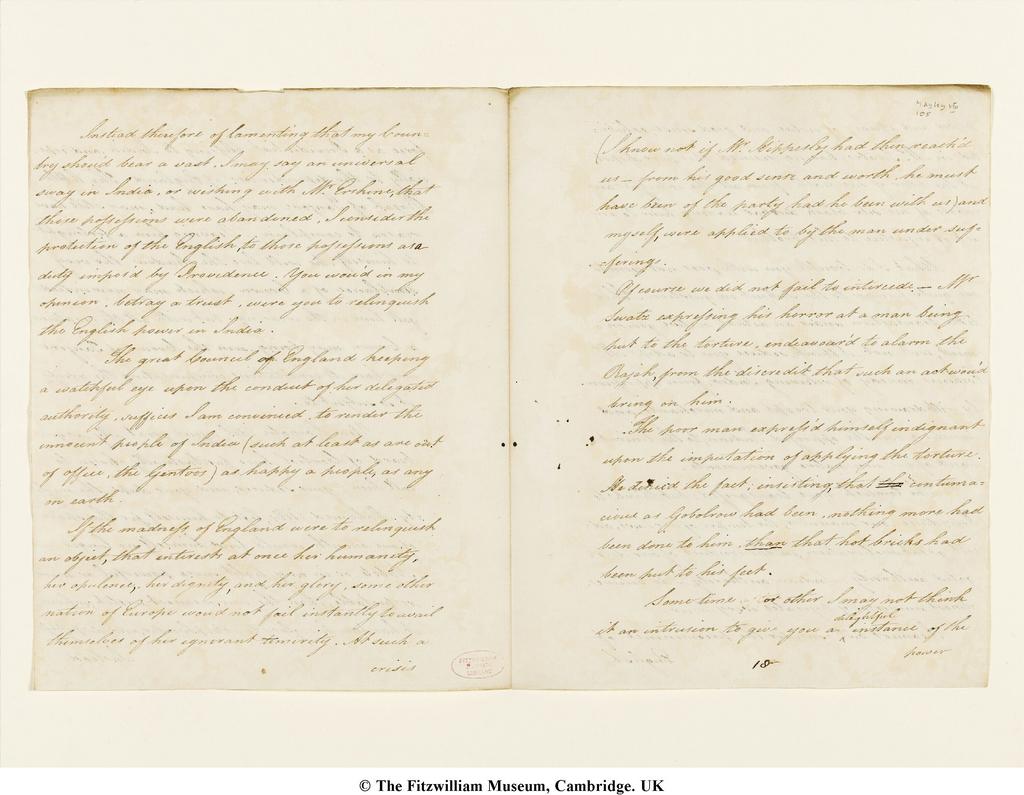 Instead therefore of lamenting that my Coun=
try shou'd bear a vast, I may say an universal
sway in India, or wishing with Mr Erskine, that
these possessions were abandoned, I consider the
protection of the English to those possessions as a
duty impos'd by Providence. You wou'd in my
opinion, betray a trust, were you to relinquish
the English power in India.
The great Council of England keeping
a watchful eye upon the conduct of her delegated
authority, suffices I am convinced, to render the
innocent people of India (such at least as are out
of office, the Gentoos) as happy a people, as any
on earth.
If the madness of England were to relinquish
an object, that interests at once her humanity,
her opulence, her dignity, and her glory, some other
nation of Europe wou'd not fail instantly to avail
themselves of her ignorant temerity. At such a
crisis
105
(I know not if Mr. Hippesley had then reach'd
us — from his good sense and worth he must
have been of the party had he been with us) and
myself, were applied to by the man under suf=
=fering.
Of course we did not fail to intercede — Mr
Swatz expressing his horror at a man being
put to the torture, endeavour'd to alarm the
Rajah, from the discredit that such an act wou'd
bring on him.
The poor man express'd himself indignant
upon the imputation of applying the torture.
He denied the fact; insisting, that contuma=
cious as Gobolrow had been, nothing more had
been done to him than that hot bricks had
been put to his feet.
Some time or other I may not think
delightful
it an intrusion to give you a instance of the
power
18
© The Fitzwilliam Museum, Cambridge. UK